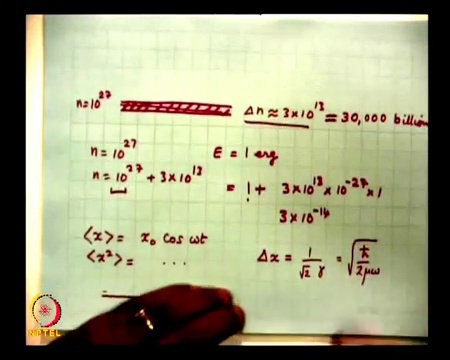 n=10²⁷ Δn ≈ 3×10¹³ = 30,000 billion
n = 10²⁷ E = 1 erg
n = 10²⁷ + 3×10¹³ = 1 + 3×10¹³ × 10⁻²⁷ × 1
3×10⁻¹⁴
⟨x⟩ = x₀ cos ωt
⟨x²⟩ = ... Δx = 1/(√2 γ) = √(ħ/2μω)
NPTEL